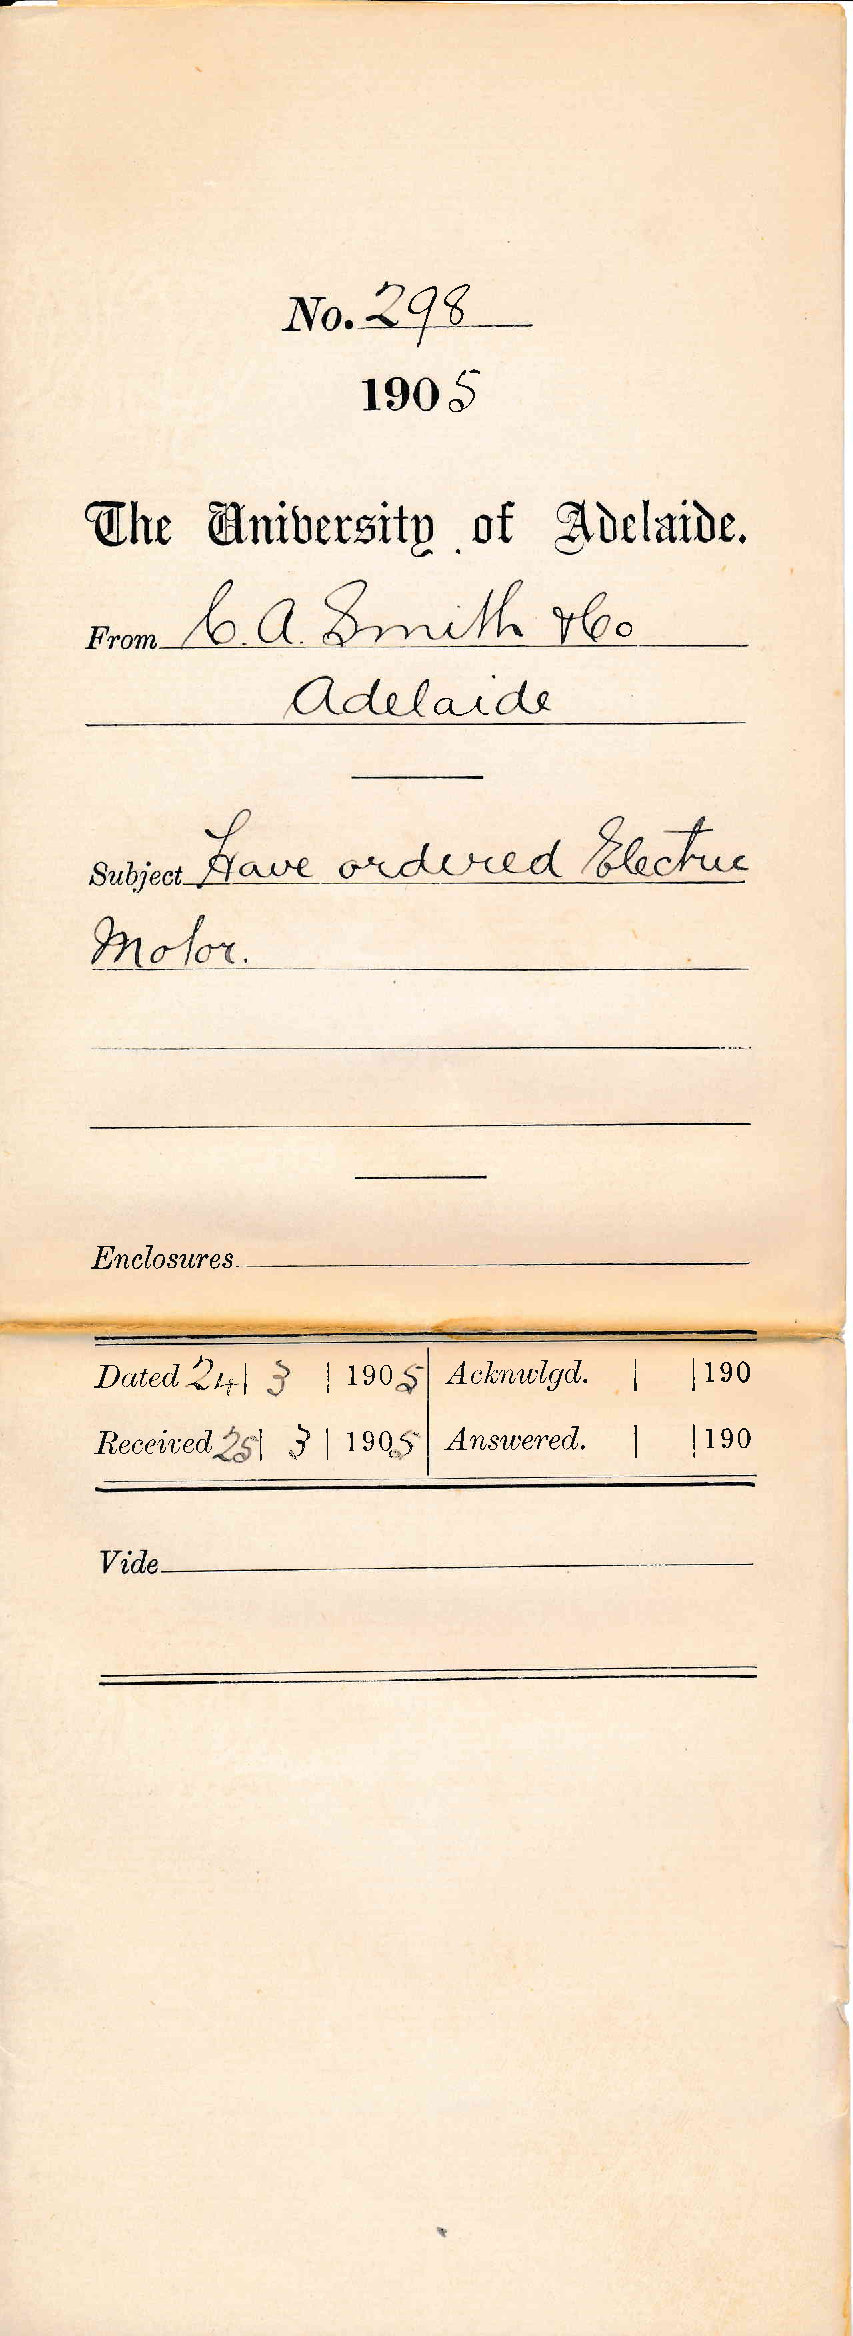 No. 298
1905
The University of Adelaide.
From C. A. Smith & Co
Adelaide
Subject Have ordered Electric
Motor.
Enclosures.
Dated 24 | 3 | 1905 Acknwlgd. | | 190
Received 25 | 3 | 1905 Answered. | | 190
Vide